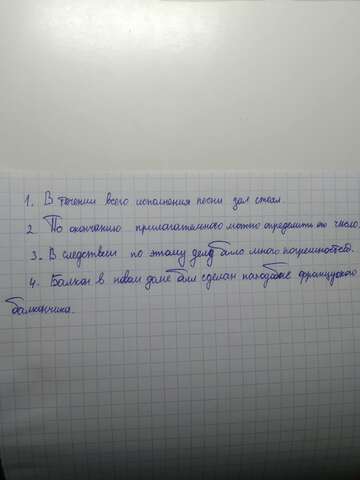 1. В течении всего исполнения песни зал стоял.
2 По окончанию прилагательного можно определить его число.
3. В следствии по этому делу было много погрешностей.
4. Балкон в новом доме был сделан наподобие французского
балкончика.